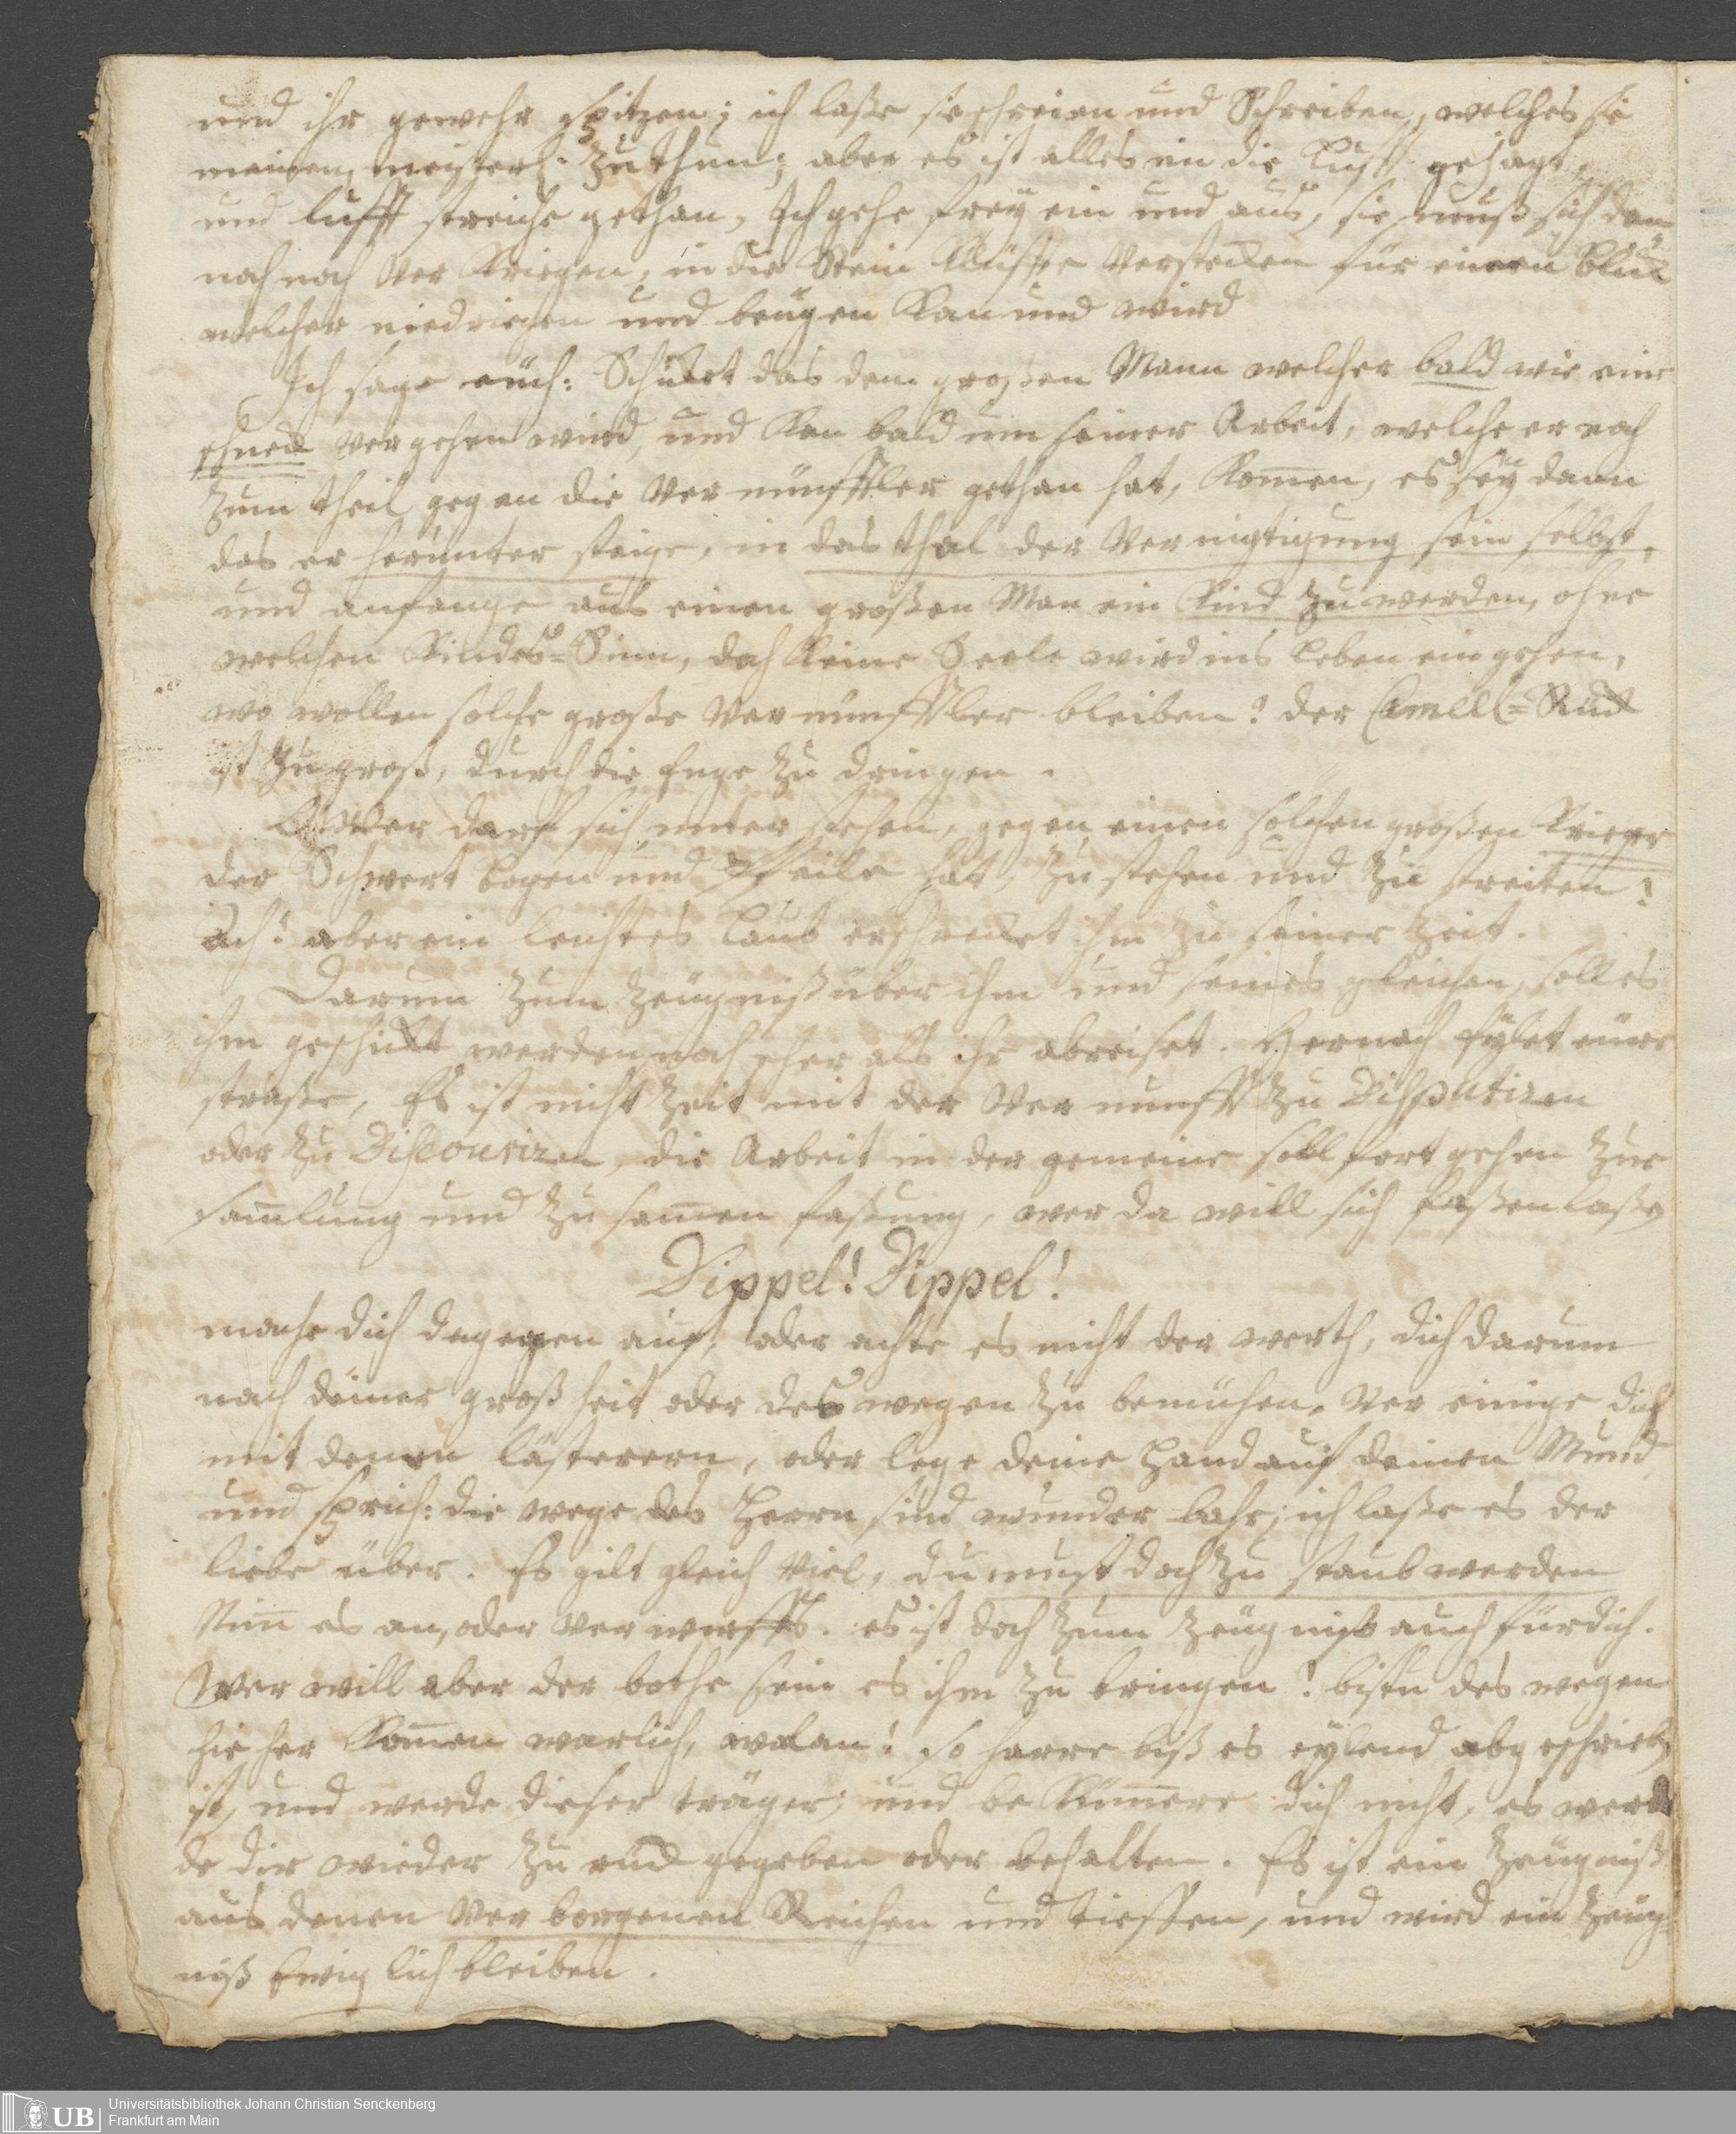 und ihr gewehr spitzen; ich laße sie schreien und Schreiben, welches sie
meinen, meisterl. zu thun; aber es ist alles in die Lufft gejagt,
und lufft streiche gethan, Ich gehe frey ein und aus, sie muß sich den
noch noch ver kriegen, in die Stein klüffte verstecken für einen Blick
welcher niedrigen und beugen kan und wird
Ich sage euch: Schicket das dem großen Mann welcher bald wie eine
schneck vergehen wird, und kan bald um seiner Arbeit, welche er noch
zum theil gegen die Ver nünfftler gethan hat, kom̅en, es sey dann
das er herunter steige, in das thal der Ver nigtigung sein selbst,
und anfange aus einen großen Man ein Kind zu werden, ohne
welchen Kindes=Sinn, doch keine Seele wird ins Leben ein gehen,
wo wollen solche große Ver nünfftler bleiben? der Camell=Rück
ist zu groß, durch die Enge zu dringen.
Wer darf sich unter stehen, gegen einen solchen großen Krieger
der Schwert bogen und Pfeile hat, zu stehen und zu streiten?
Ach! aber ein leichtes Laub erschrecket ihm zu seiner Zeit.
Darum zum Zeugniß über ihm und seines gleichen, soll es
ihm geschickt werden, noch eher als ihr abreiset. Hernach eylet eure
straße, Es ist nicht Zeit mit der Ver nunfft zu Disputiren
oder zu Discouriren, die Arbeit in der gemeine soll fort gehen zur
sam̅lung und zu sam̅en faßung, wer da will sich faßen laße
Dippel! Dippel!
mache dich dagegen auf, oder achte es nicht der werth, dich darum
nach deiner groß heit oder des wegen zu bemühen, Ver einige dich
mit denen lästerern, oder lege deine Hand auf deinen Mund
und sprich: die wege des Herrn sind wunder bahr; ich laße es der
liebe über. Es gilt gleich viel, du must doch zu staub werden
Nim̅ es an, oder ver wirffs. es ist doch zum Zeug niß auch für dich.
Wer will aber der bothe sein es ihm zu bringen? bistu des wegen
hie her kom̅en warlich, wolan! so harre biß es eylend abg eschrieb
ist, und werde dieser träger; und be küm̅ere dich nicht, es wer
de dir wieder zu rück gegeben oder behalten. Es ist ein Zeugniß
aus denen Ver borgenen Reichen und tieffen, und wird ein Zeug=
niß Ewig lich bleiben.
UB
Universitätsbibliothek Johann Christian Senckenberg
Frankfurt am Main